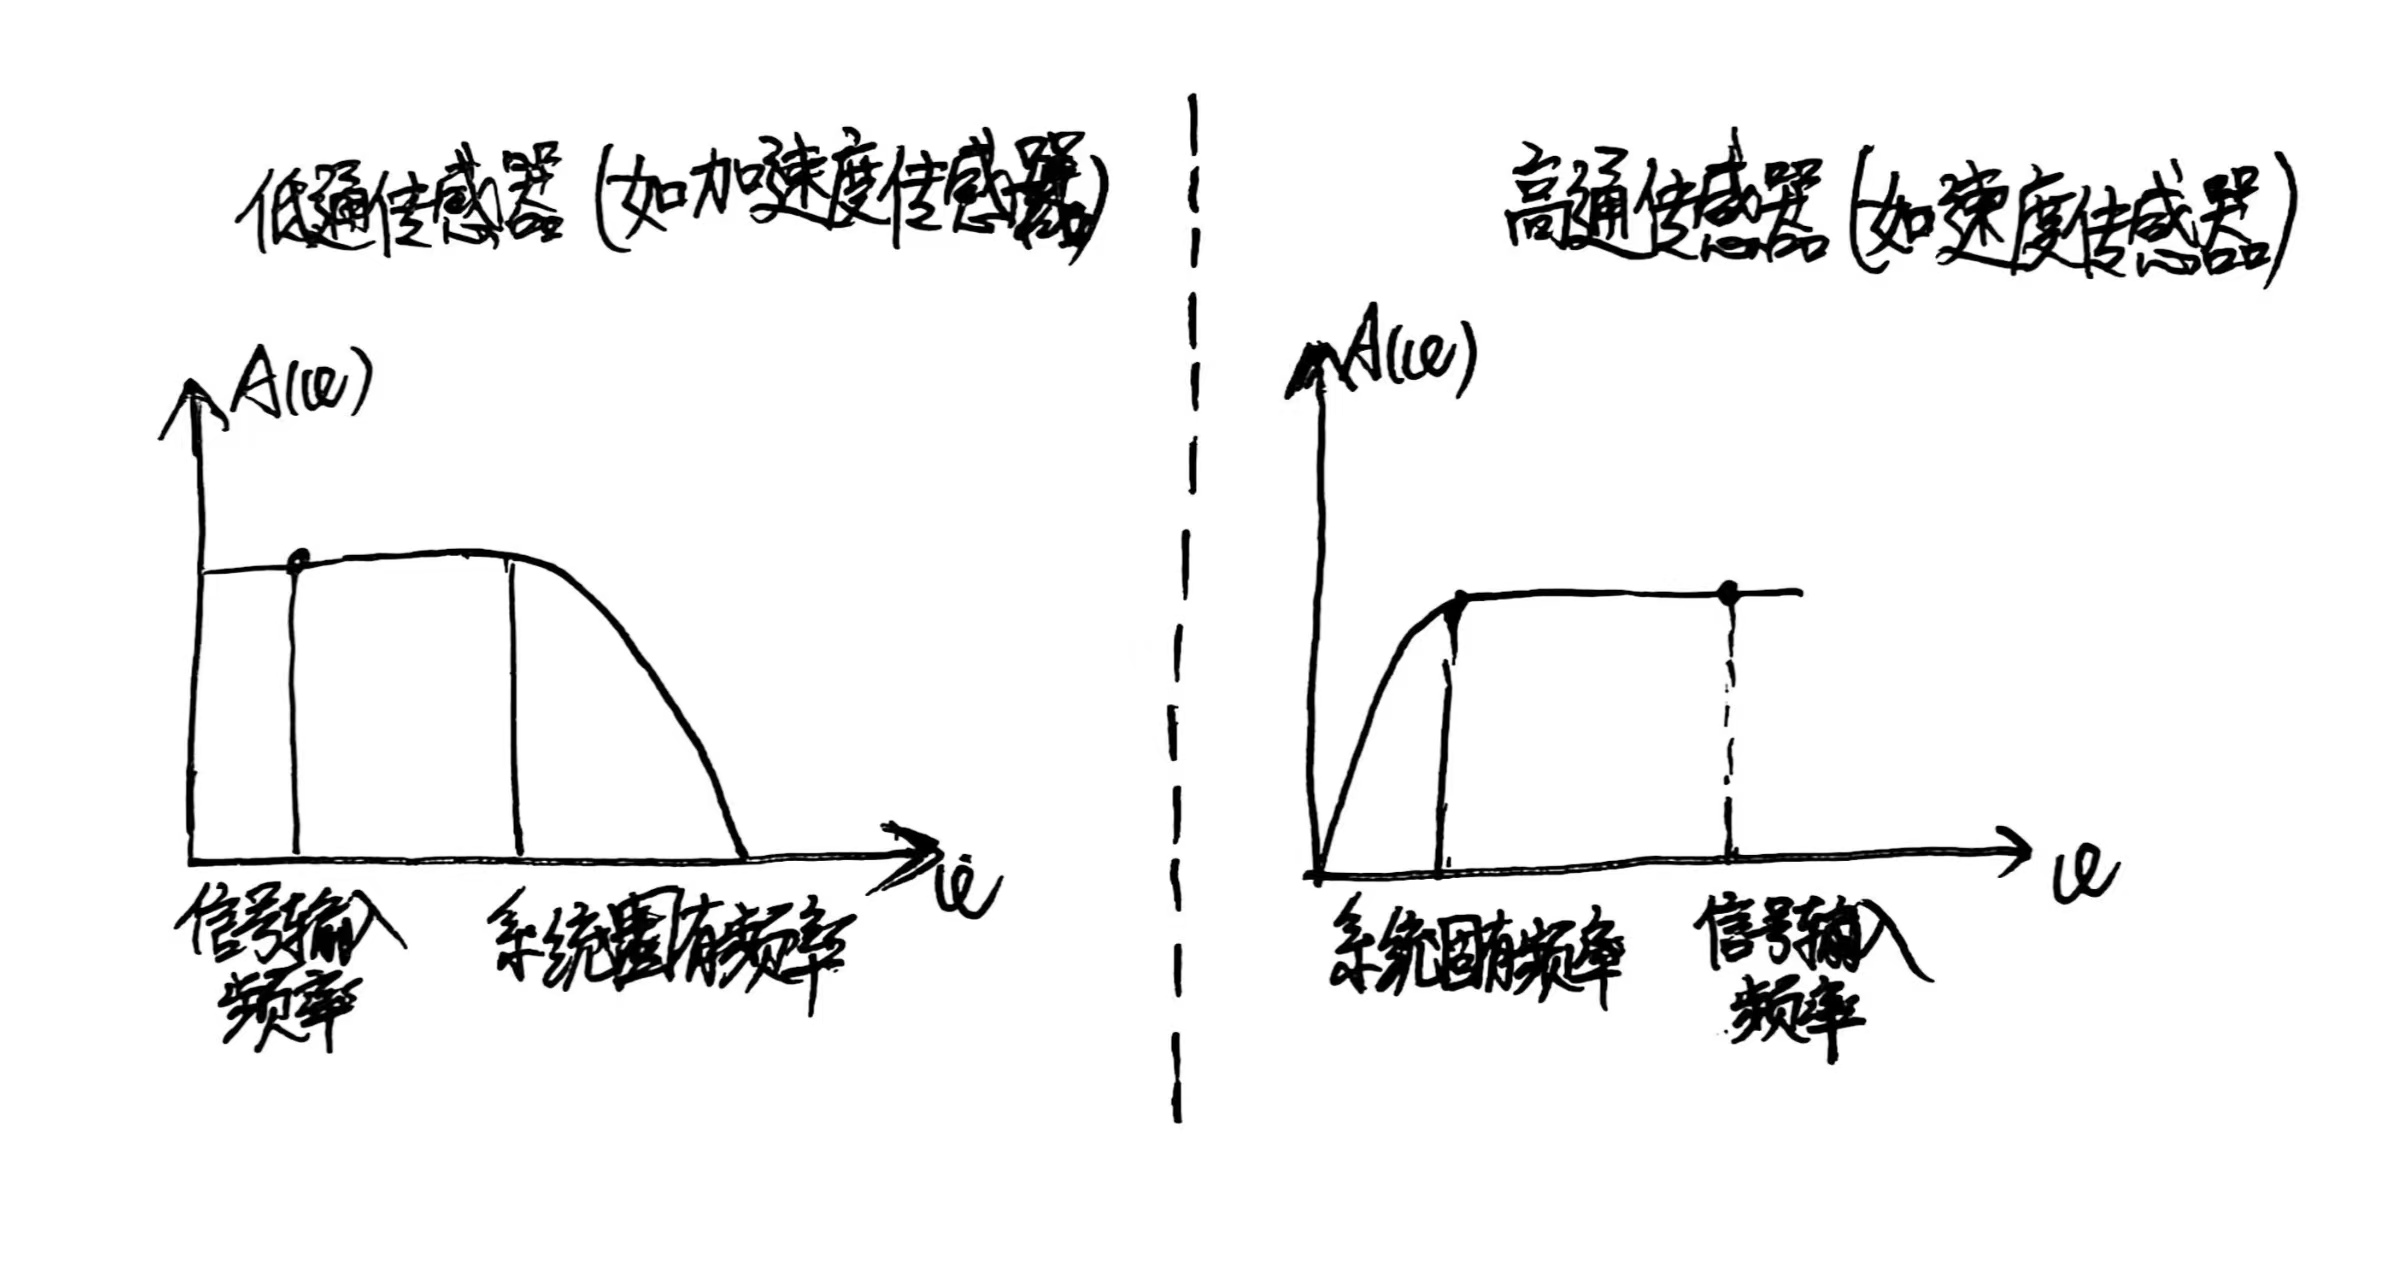 低通传感器(如加速度传感器)
A(ω)
ω
信号输入
频率
系统固有频率
高通传感器(如速度传感器)
A(ω)
ω
系统固有频率
信号输入
频率